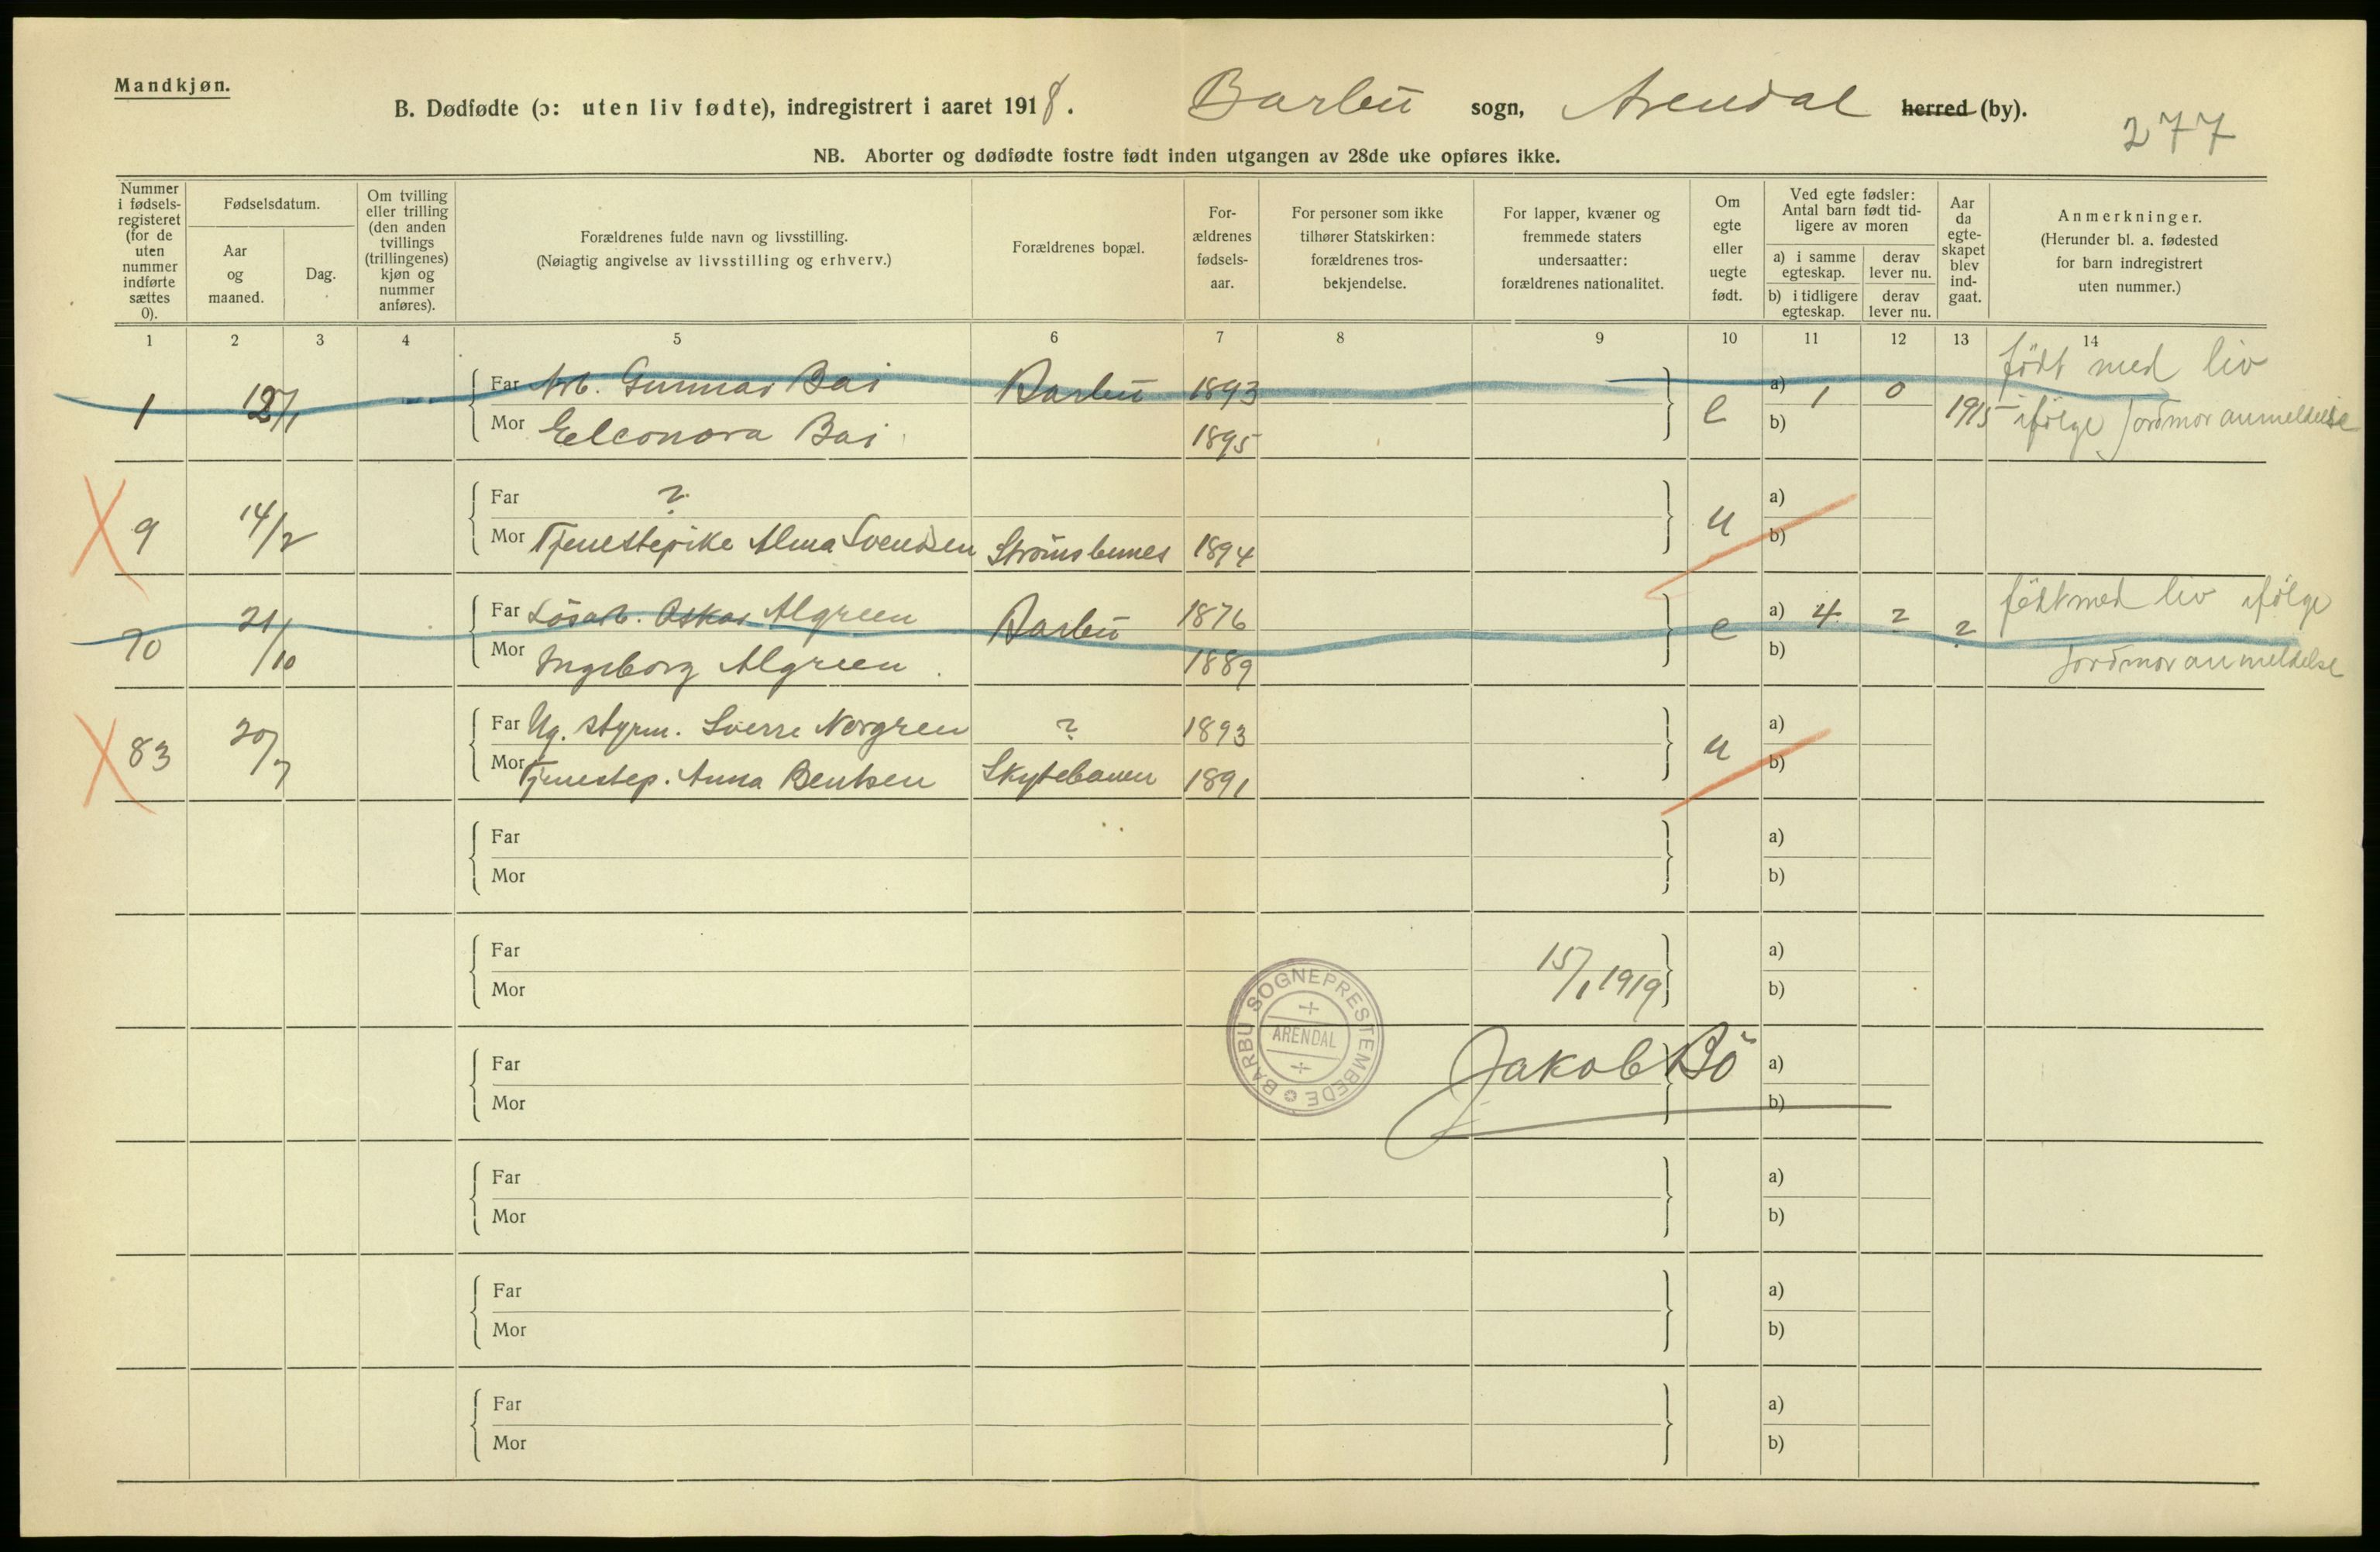 Mandkjøn.
B. Dødfødte (ɔ: uten liv fødte), indregistrert i aaret 1918. Barbu sogn, Arendal herred (by).
277
NB. Aborter og dødfødte fostre født inden utgangen av 28de uke opføres ikke.
Nummer i fødsels-registeret (for de uten nummer indførte sættes 0).
Fødselsdatum.
Aar og maaned.
Dag.
Om tvilling eller trilling (den anden tvillings (trillingenes) kjøn og nummer anføres).
Forældrenes fulde navn og livsstilling.
(Nøiagtig angivelse av livsstilling og erhverv.)
Forældrenes bopæl.
For-ældrenes fødsels-aar.
For personer som ikke tilhører Statskirken: forældrenes tros-bekjendelse.
For lapper, kvæner og fremmede staters undersaatter: forældrenes nationalitet.
Om egte eller uegte født.
Ved egte fødsler: Antal barn født tid-ligere av moren
a) i samme egteskap.
derav lever nu.
b) i tidligere egteskap.
derav lever nu.
Aar da egte-skapet blev ind-gaat.
Anmerkninger.
(Herunder bl. a. fødested for barn indregistrert uten nummer.)
1 2 3 4 5 6 7 8 9 10 11 12 13 14
1 12/1 Far Arb. Gunnar Bai Barbu 1893 e a) 1 0 1915 født med liv
Mor Eleonora Bai 1895 b) ifølge Jordmoranmeldelse
9 14/2 Far ? u a)
Mor Tjenestepike Alma Svendsen Strømsbunes 1894 b)
70 21/10 Far Løsarb. Oskar Algreen Barbu 1876 e a) 4 ? ? født med liv ifølge
Mor Ingeborg Algreen 1889 b) Jordmoranmeldelse
83 20/7 Far Ug. styrm. Sverre Norgren ? 1893 u a)
Mor Tjenestep. Anna Bentsen Skytebanen 1891 b)
Far a)
Mor b)
Far 15/1 1919 a)
Mor b)
BARBU SOGNEPRESTEMBEDE
ARENDAL
Far Jakob Bö a)
Mor b)
Far a)
Mor b)
Far a)
Mor b)
Far a)
Mor b)